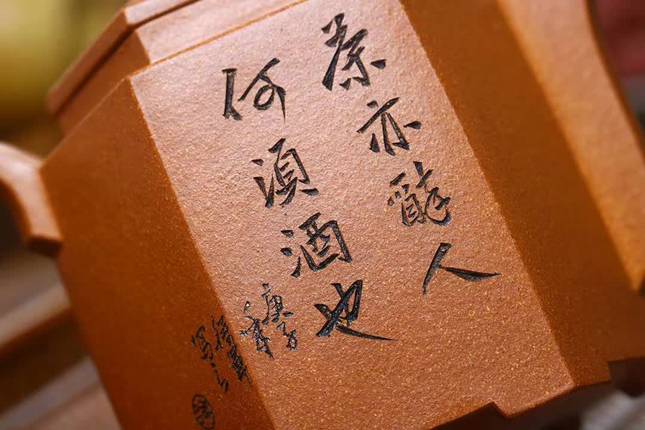 茶亦醉人
何須酒也
庚子